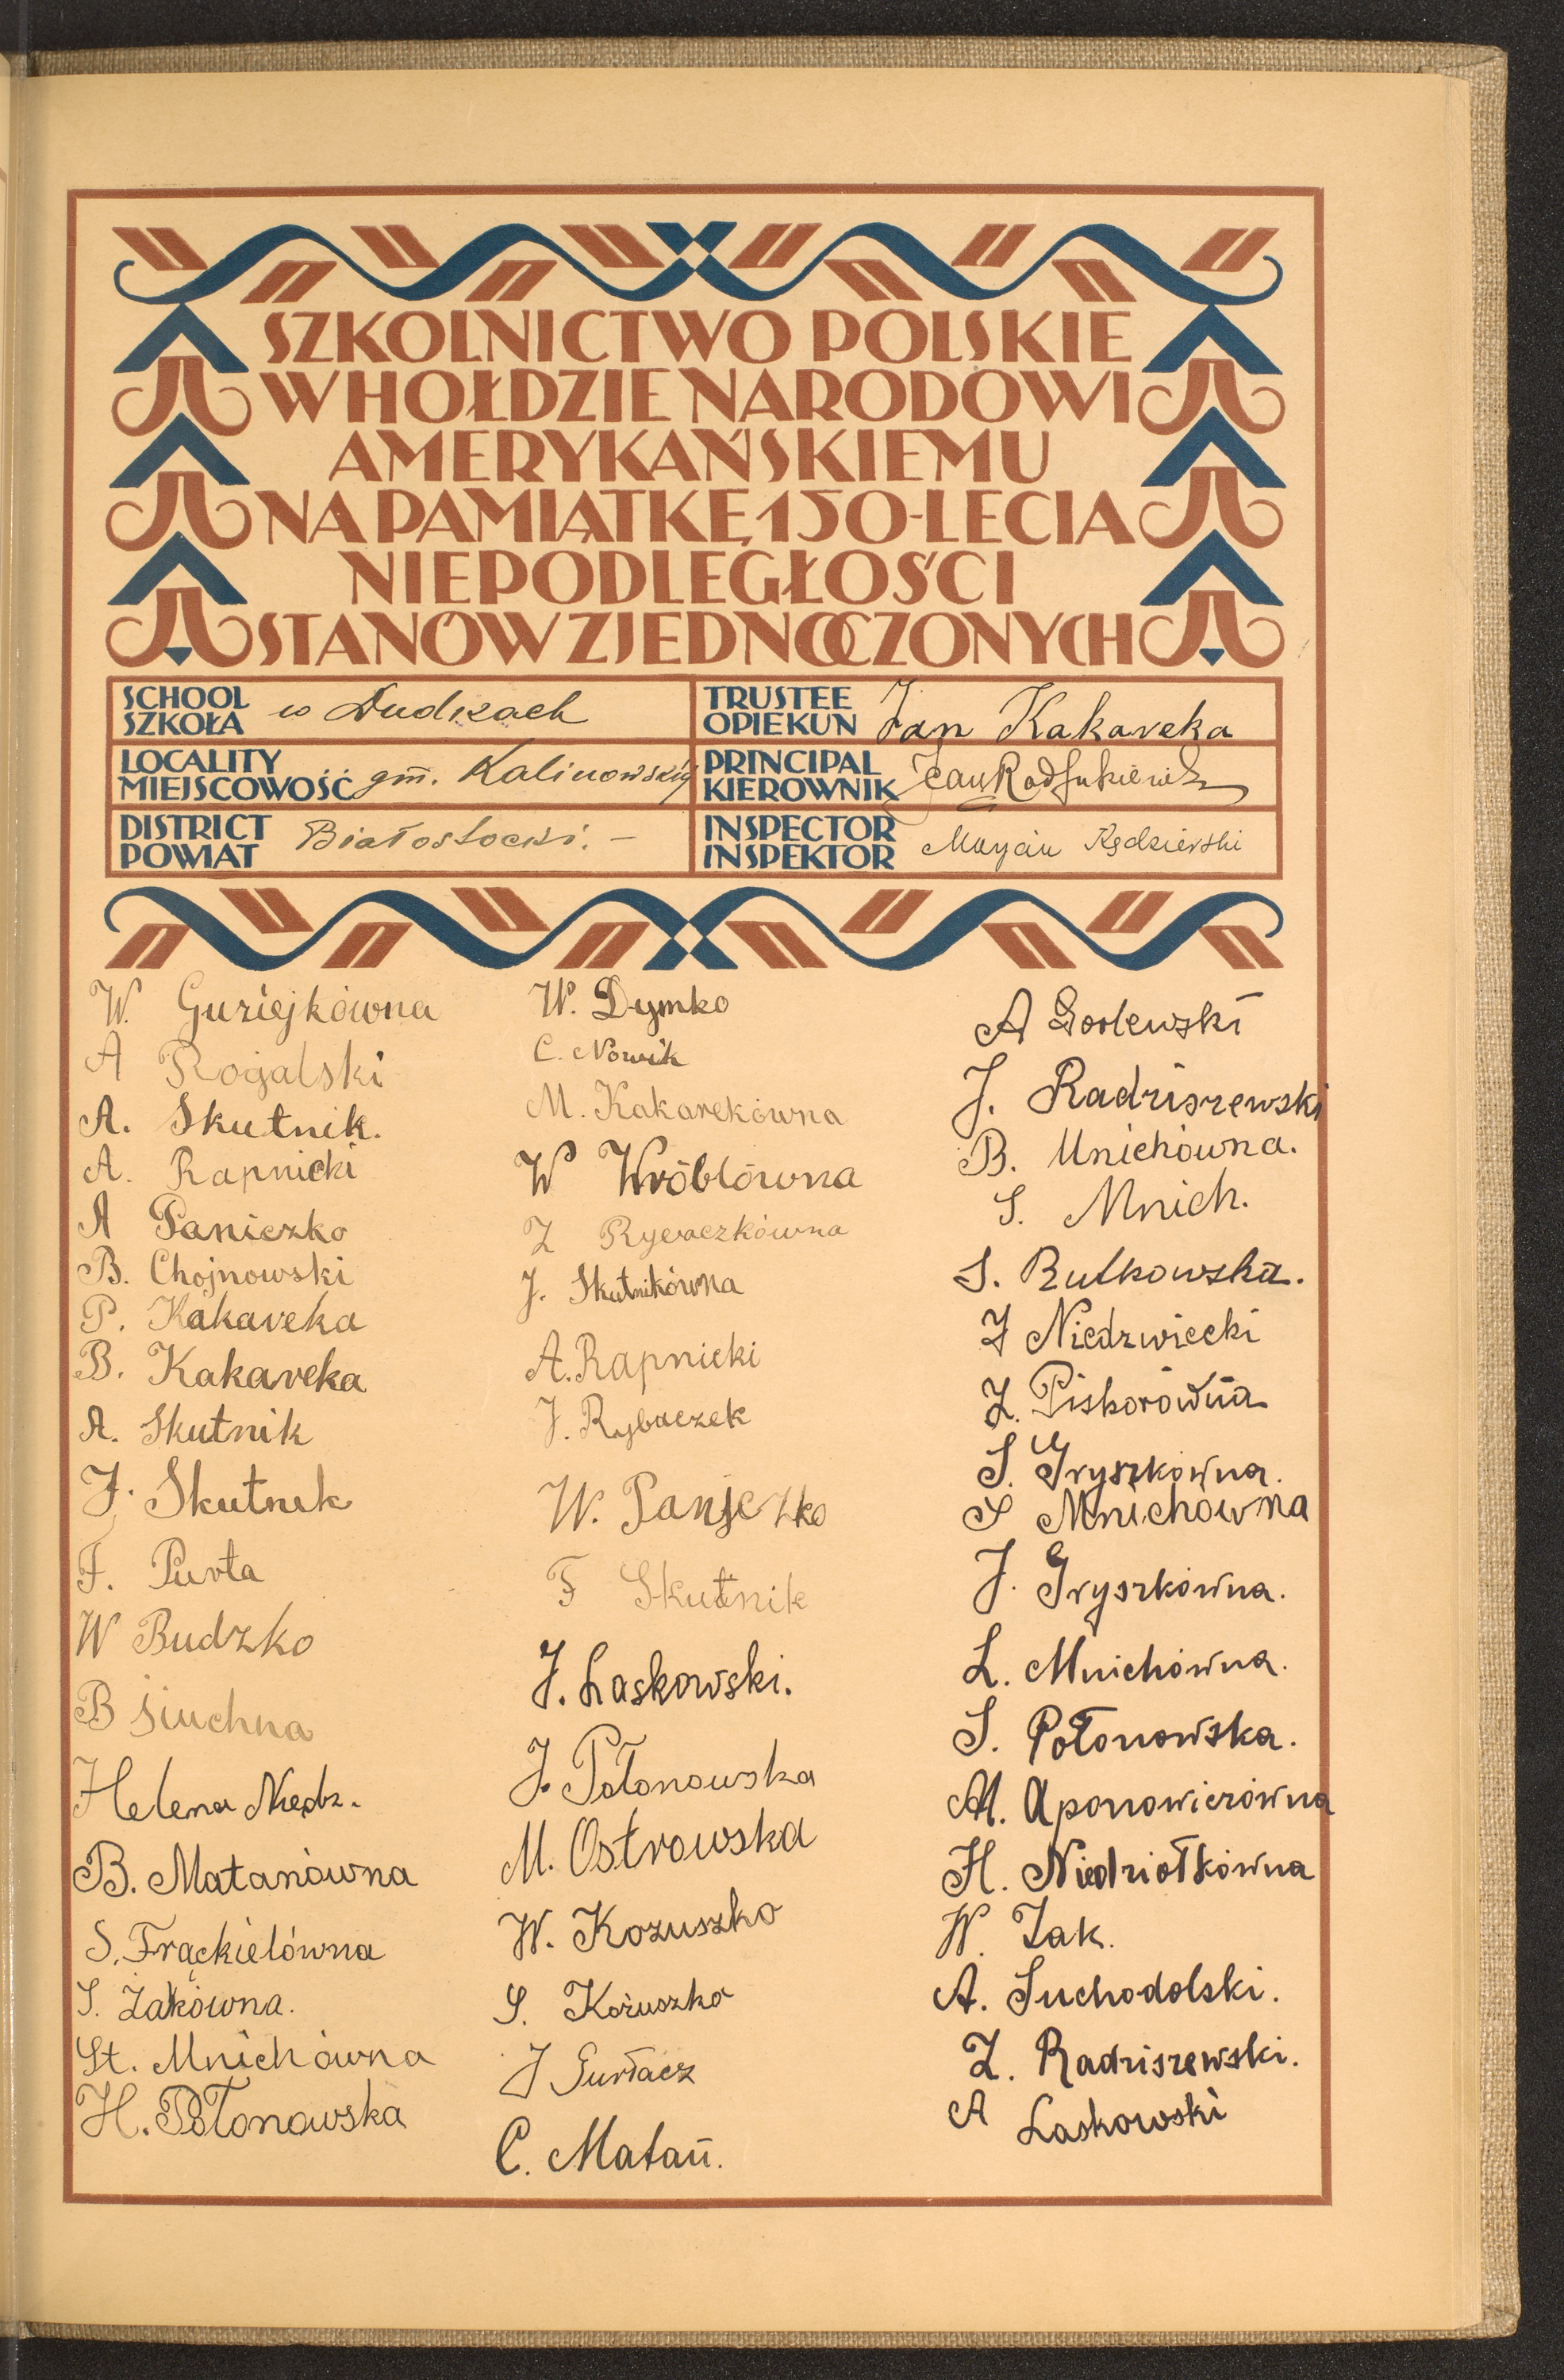 SZKOLNICTWO POLSKIE
W HOŁDZIE NARODOWI
AMERYKAŃSKIEMU
NA PAMIĄTKĘ 150-LECIA
NIEPODLEGŁOŚCI
STANÓW ZJEDNOCZONYCH
SCHOOL
SZKOŁA
w Dudkach
TRUSTEE
OPIEKUN
Jan Kakareka
LOCALITY
MIEJSCOWOŚĆ
gm. Kalinowskiej
PRINCIPAL
KIEROWNIK
Jan
DISTRICT
POWIAT
Białostocki. –
INSPECTOR
INSPEKTOR
Maryan Kędzierski
W. Guziejkówna
A Rogalski
A. Skutnik.
A. Rapnicki
A Paniczko
B. Chojnowski
P. Kakareka
B. Kakareka
A. Skutnik
J. Skutnik
F. Purta
W Budzko
B Siuchna
Helena Niedz.
B. Matanówna
S. Frąckielówna
S. Żakówna.
St. Mnichówna
H. Połonowska
W. Dymko
C. Nowik
M. Kakarekówna
W Wróblówna
Z Rybaczkówna
J. Skutnikówna
A. Rapnicki
J. Rybaczek
W. Paniczko
F Skutnik
J. Laskowski.
J. Połonowska
M. Ostrowska
W. Kozuszko
S. Kożuszko
J Gurłacz
C. Matań.
A Godlewski
J. Radziszewski
B. Mnichówna.
S. Mnich.
S. Rutkowska.
Z Niedzwiecki
Z. Piskorówna
S. Gryszkówna.
S Mnichówna
J. Gryszkówna.
L. Mnichówna.
S. Połonowska.
M. Aponowiczówna
H. Niedziołkówna
W. Zak.
A. Suchodolski.
Z. Radziszewski.
A Laskowski